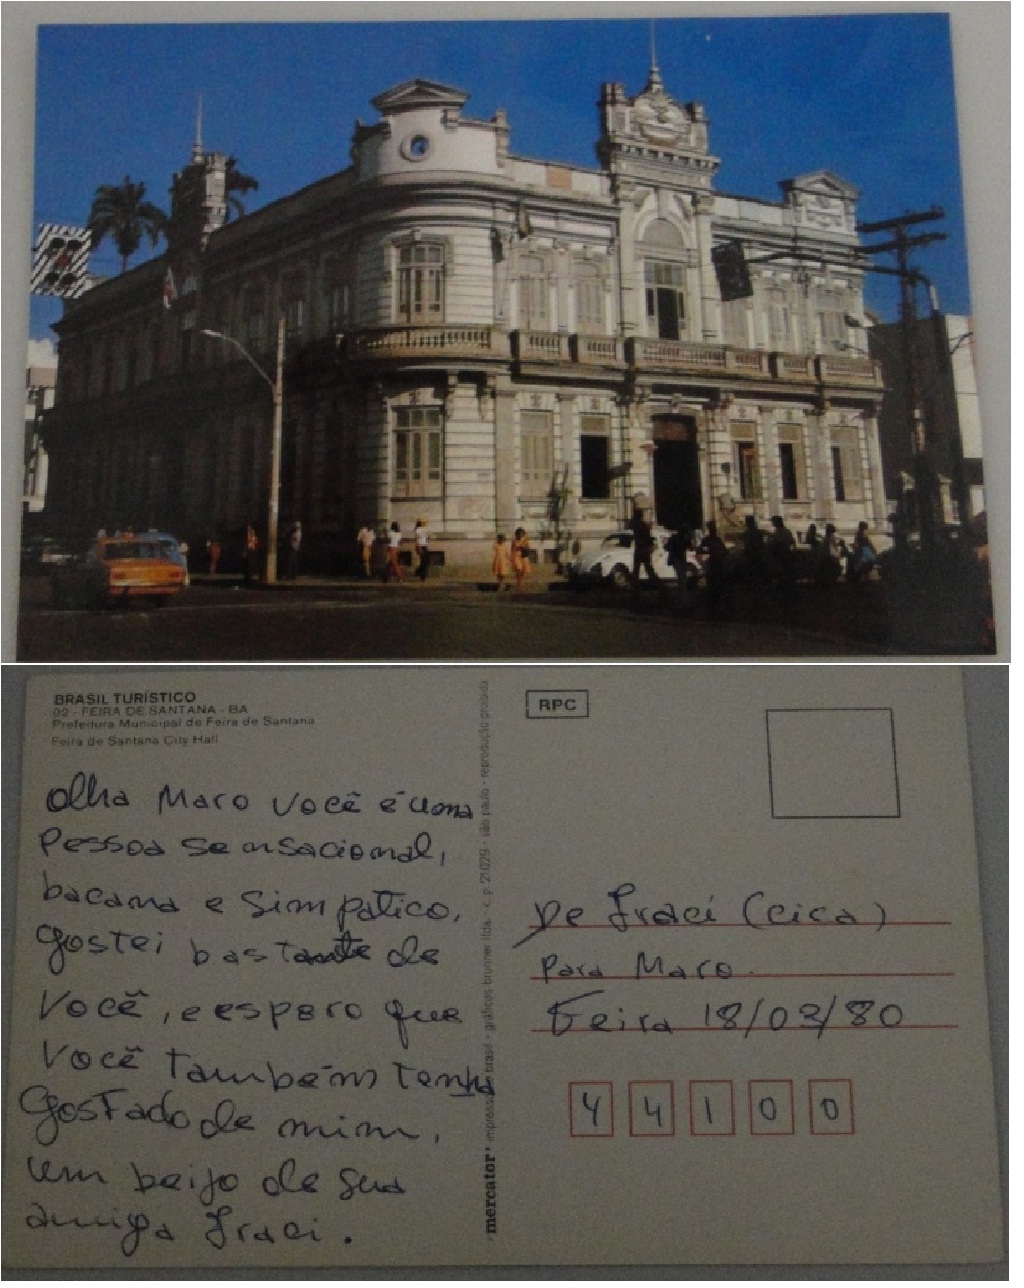 BRASIL TURÍSTICO
02 - FEIRA DE SANTANA - BA
Prefeitura Municipal de Feira de Santana
Feira de Santana City Hall
Olha Maro você é uma
pessoa sensacional,
bacana e simpatico,
gostei bastante de
você, e espero que
você também tenha
gostado de mim,
um beijo de sua
amiga Iraci.
mercator • impresso no brasil • gráficos brunner ltda. • c.p. 21029 • são paulo • reprodução proibida
RPC
De Iraci (cica)
Para Maro.
Feira 18/03/80
44100